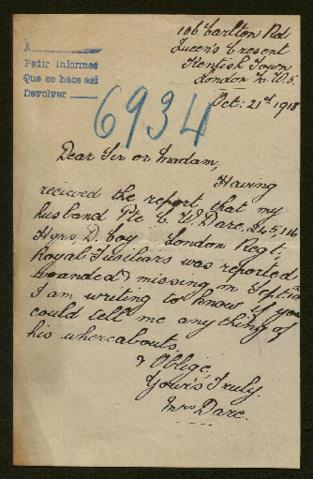 A
Pedir informes
Que se hace así
Devolver
6934
106 Carlton Rd
Queen's Cresent
Kentish Town
London N.W.5.
Oct: 21st 1918
Dear Sir or Madam,
Having
recieved the report that my
husband Pte C. W. Dare, 245,116
D. Coy London Regt.
Royal Fusiliars was reported
wounded & missing on Sept.
I am writing to know if you
could tell me any thing of
his whereabouts.
& Oblige,
Your's Truly.
Mrs Dare.